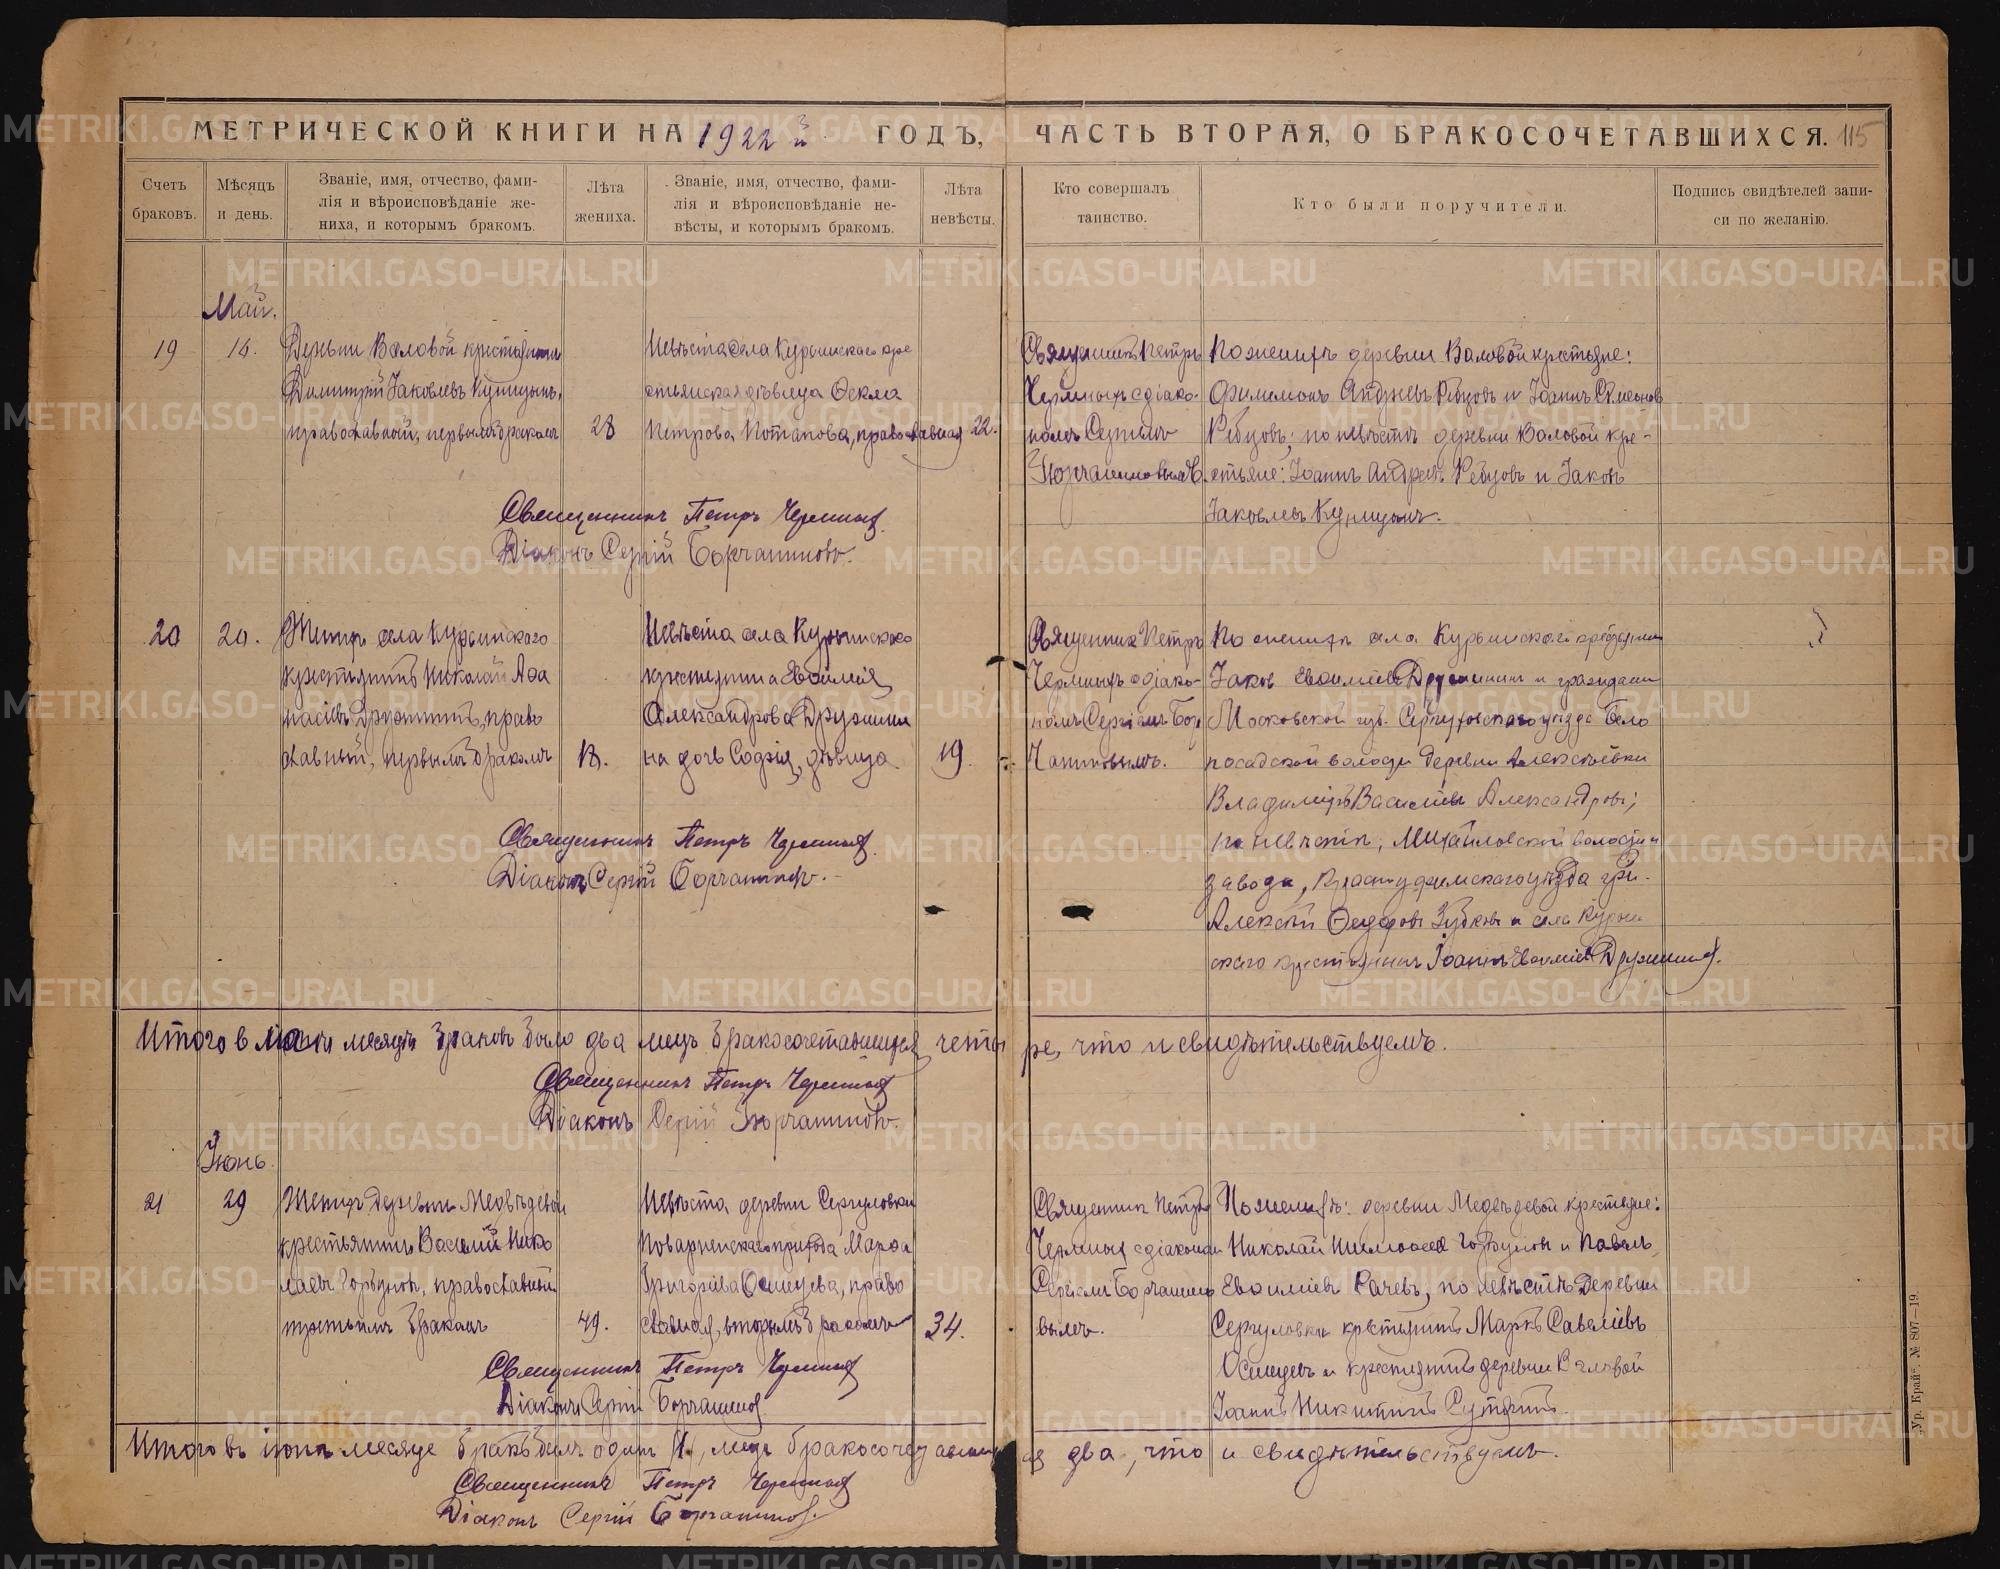 МЕТРИЧЕСКОЙ КНИГИ НА 1922 й ГОДЪ, ЧАСТЬ ВТОРАЯ, О БРАКОСОЧЕТАВШИХСЯ. 115
Счетъ браковъ.
Мѣсяцъ и день.
Званіе, имя, отчество, фами-
лія и вѣроисповѣданіе же-
ниха, и которымъ бракомъ.
Лѣта жениха.
Званіе, имя, отчество, фами-
лія и вѣроисповѣданіе не-
вѣсты, и которымъ бракомъ.
Лѣта невѣсты.
Кто совершалъ таинство.
Кто были поручители.
Подпись свидѣтелей запи-
си по желанію.
Май.
19
Валовой крестьянинъ
Димитрій Яковлевъ
православной, первымъ бракомъ
28
Невѣста села Курьинскаго кре
стьянская дѣвица Ѳекла
Петрова Потапова, православная
22.
Священникъ Петръ
съ діако-
номъ Сергіемъ
По женихѣ деревни Валовой крестьяне:
Филимонъ Андреевъ Рябцовъ и Іоаннъ Симеонов
Рябцовъ; по невѣстѣ деревни Валовой кре-
стьяне: Іоаннъ Андреевъ Рябцовъ и Іаковъ
Іаковлевъ
Священникъ Петръ
Діаконъ Сергій
20
20.
Женихъ села Курьинскаго
крестьянинъ Николай Аѳа
насіевъ Дружининъ, право
славный, первымъ бракомъ
18.
Невѣста села Курьинскаго
крестьянина Евѳимія
Александрова Дружини
на дочь Софія, дѣвица
19.
Священник Петръ
съ діако-
номъ Сергіемъ
По женихѣ села Курьинскаго
Іаков Евѳиміевъ Дружинин и граждан
Московской губ. Серпуховскаго уѣзда Бело
посадской волости деревни Алексѣевки
Владиміръ Василіевъ Александровъ;
по невѣстѣ, Михайловской волости и
завода, Красноуфимскаго уѣзда гр.
Алексѣй Ѳедоровъ Зубковъ и села Курьин
скаго крестьянинъ Іоаннъ Евѳиміевъ Дружининъ.
Священникъ Петръ
Діаконъ Сергій
Итого в маѣ месяцѣ браковъ было два лицъ бракосочетавшихся четы ре, что и свидѣтельствуемъ.
Священникъ Петръ
Діаконъ Сергій
Іюнь.
21
29
Женихъ деревни Медвѣдевой
крестьянинъ Василій Нико
лаевъ Горбуновъ, православный
третьимъ бракомъ
49.
Невѣста деревни Сергуловки
Поварненскаго прихода Марѳа
Григорьева Осинцева, право
славная, вторымъ бракомъ
34.
Священникъ Петръ
съ діакономъ
Сергіемъ
вымъ.
По женихѣ: деревни Медвѣдевой крестьяне:
Николай Горбуновъ и Павелъ
Евѳиміевъ Рачевъ, по невѣстѣ деревни
Сергуловки крестьянинъ Маркъ Савеліевъ
Осинцевъ и крестьянинъ деревни Валовой
Іоаннъ Никитинъ
Священникъ Петръ
Діаконъ Сергій
Итого въ іюнѣ месяце бракъ былъ одинъ 1, лицъ бракосочетавшихся два, что и свидѣтельствуемъ.
Священникъ Петръ
Діаконъ Сергій
Ур. Край". № 807—19.
METRIKI.GASO-URAL.RU